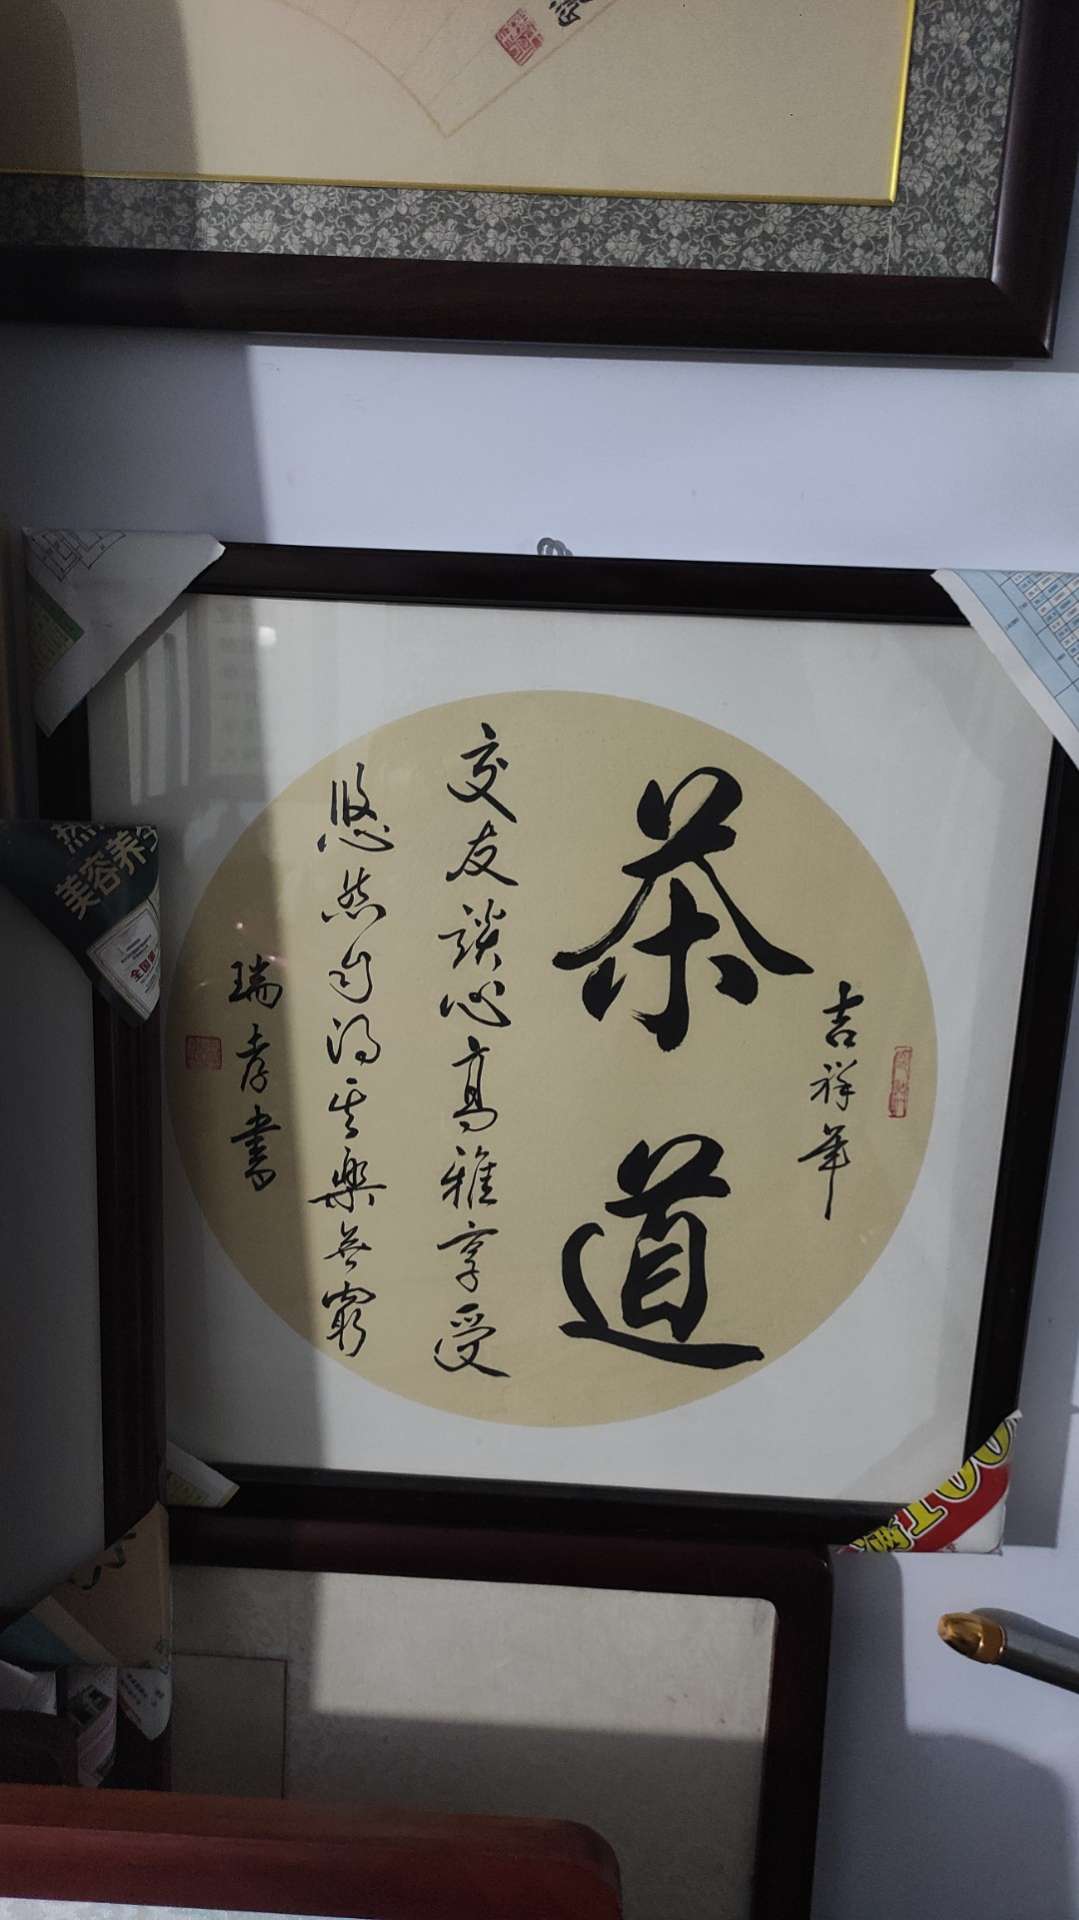 吉祥年
茶道
交友談心高雅享受
悠然自得其樂無窮
瑞孝書
美容养
全国第
100